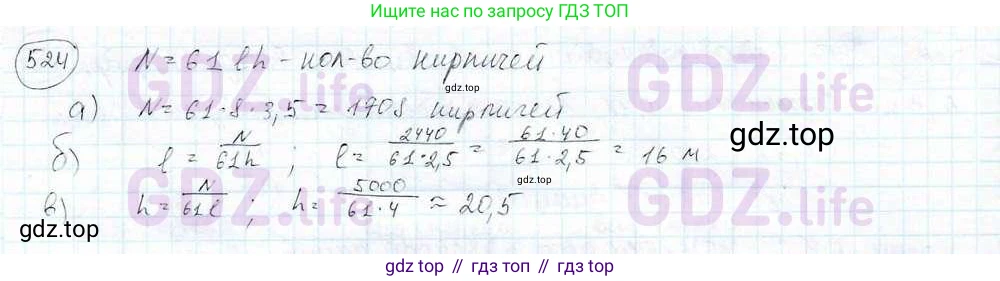 Ищите нас по запросу ГДЗ ТОП
524 N = 61lh - кол-во кирпичей
gdz.top
а) N = 61·8·3,5 = 1708 кирпичей
gdz.top
б) l = N/61h ; l = 2440/61·2,5 = 61·40/61·2,5 = 16 м
gdz.top
в) h = N/61l ; h = 5000/61·4 ≈ 20,5
gdz.top // гдз топ // gdz.top